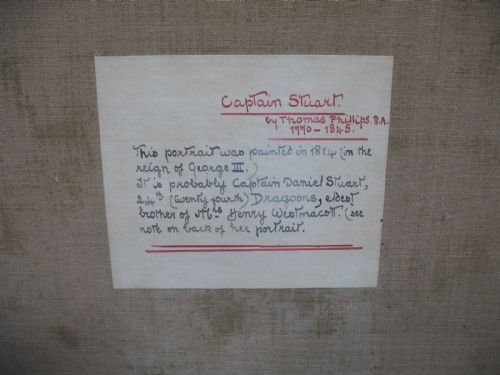 Captain Stuart.
by Thomas Phillips. R.A.
1770 - 1845.
This portrait was painted in 1814 (in the
reign of George III.)
It is probably Captain Daniel Stuart,
24th (twenty fourth) Dragoons, eldest
brother of Mrs Henry Westmacott. (see
note on back of her portrait.